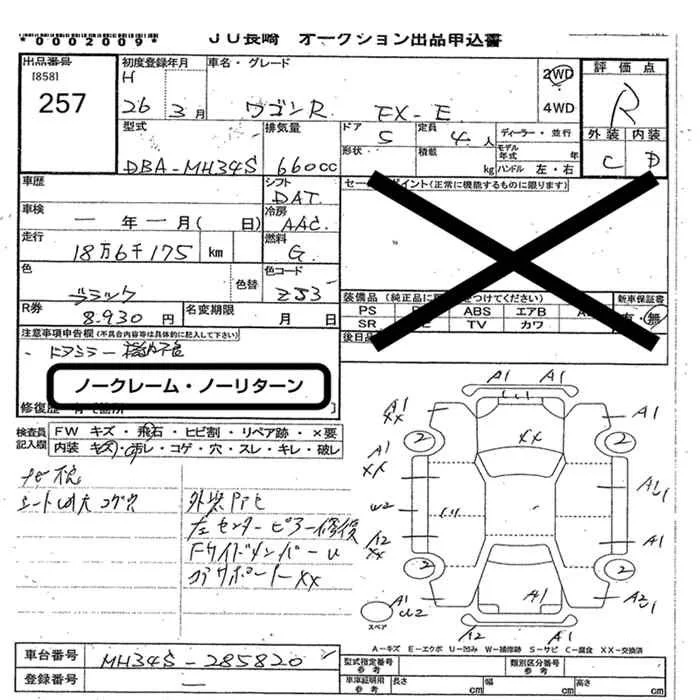 *0002009*
JU長崎 オークション出品申込書
出品番号 初度登録年月 車名・グレード 2WD 評価点
[858] H
257 26 3月 ワゴンR FX-E 4WD R
型式 排気量 ドア 5 定員 4人 ディーラー・並行 外装 内装
形状 積載 kg モデル年式 年
DBA-MH34S 660cc ハンドル 左・右 C D
車歴 シフト DAT セールスポイント(正常に機能するものに限ります)
車検 ー年ー月( 日) 冷房 AAC
走行 18万6千175 km 燃料 G
色 ブラック 色替 色コード ZJ3
装備品 (純正品に つけてください) 新車保証書
PS ABS エアB 有・無
SR TV カワ
R券 8.930円 名変期限 月 日
後日品
注意事項申告欄(不具合内容等は具体的に記入して下さい)
・ドアミラー
ノークレーム・ノーリターン
修復歴
検査員記入欄 FW キズ・飛石・ヒビ割・リペア跡・×要
内装 キズ・汚レ・コゲ・穴・スレ・キレ・破レ
ナビ
シート
外装
左センターピラー修復
Fサイドメンバーu
コアサポートXX
A1 A1
A1 XX A1
2 XX 2
A1 XX
U2
A2 XX A1
2 2
A1 U2 A1
スペア
A2 A1
A-キズ E-エクボ U-凹み W-補修跡 S-サビ C-腐食 XX-交換済
車台番号 MH34S-285820
型式指定番号 参考 類別区分番号 参考
登録番号 ー
車庫証明用 参考 長さ cm 幅 cm 高さ cm